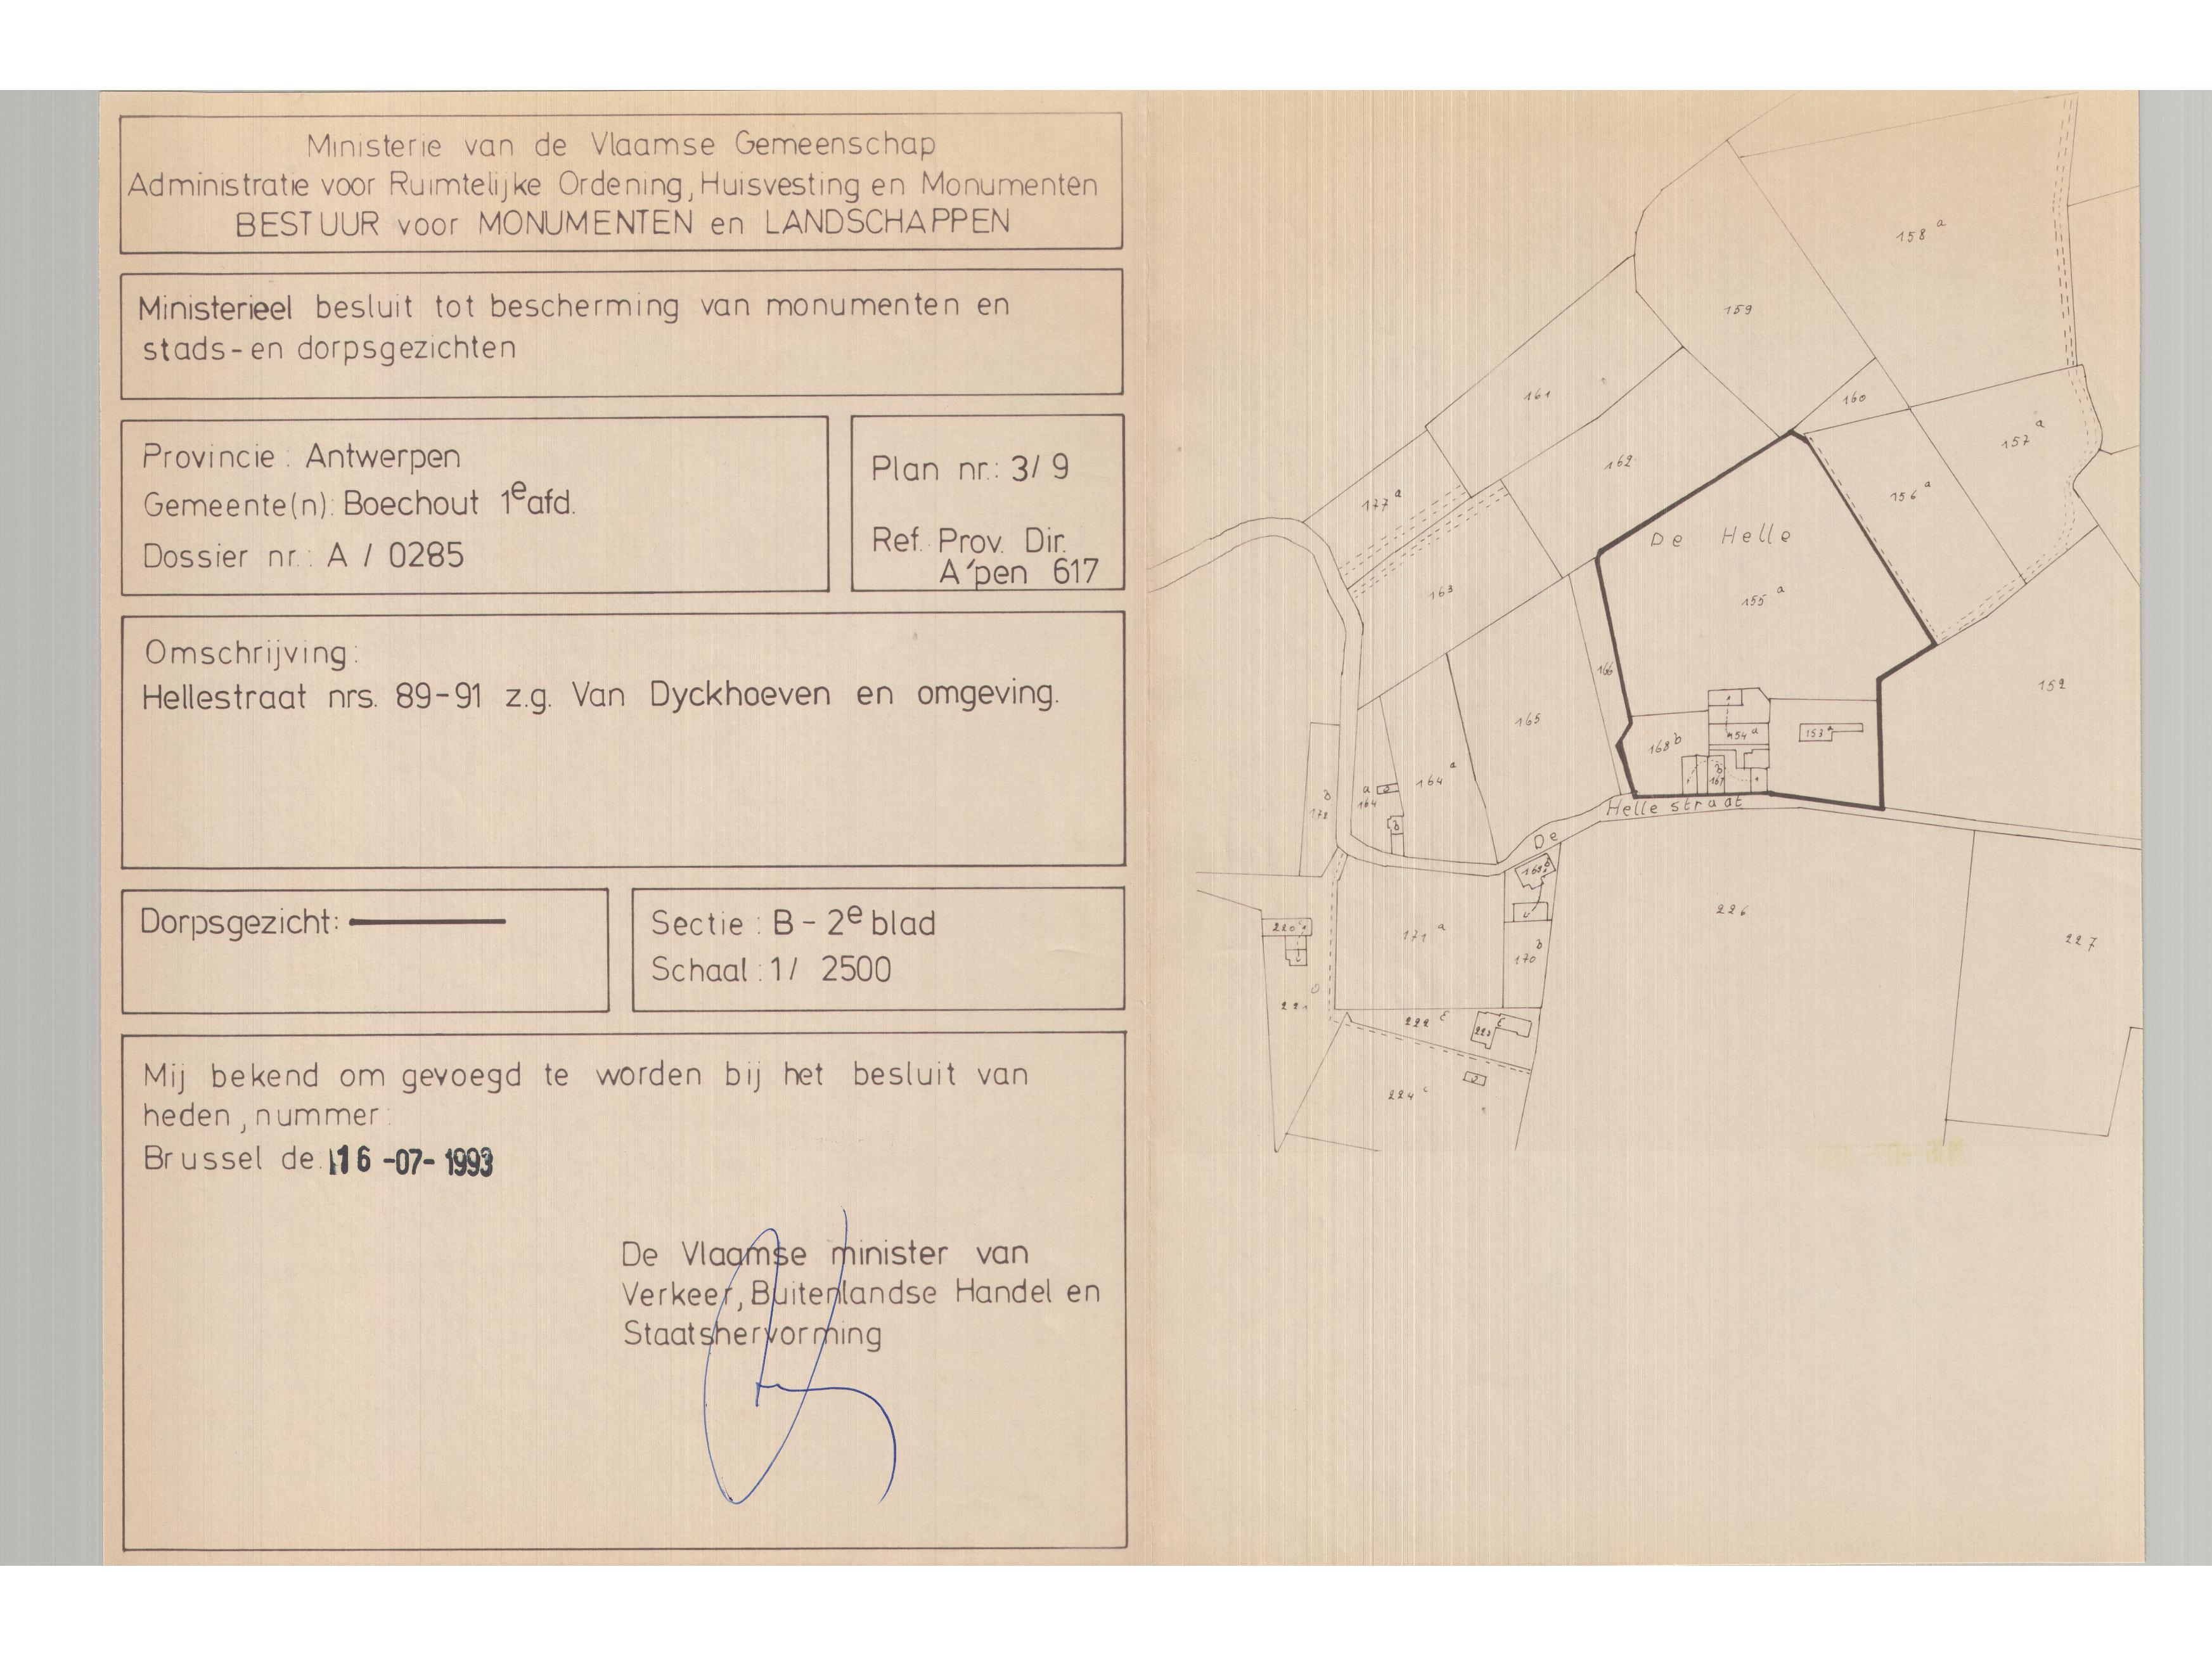 Ministerie van de Vlaamse Gemeenschap
Administratie voor Ruimtelijke Ordening, Huisvesting en Monumenten
BESTUUR voor MONUMENTEN en LANDSCHAPPEN
Ministerieel besluit tot bescherming van monumenten en
stads-en dorpsgezichten
Provincie: Antwerpen
Gemeente(n): Boechout 1e afd.
Dossier nr.: A / 0285
Plan nr.: 3/9
Ref. Prov. Dir.
A'pen 617
Omschrijving:
Hellestraat nrs. 89-91 z.g. Van Dyckhoeven en omgeving.
Dorpsgezicht:
Sectie: B - 2e blad
Schaal: 1/ 2500
Mij bekend om gevoegd te worden bij het besluit van
heden, nummer:
Brussel de. 16 -07- 1993
De Vlaamse minister van
Verkeer, Buitenlandse Handel en
Staatshervorming
158 a
159
161
160
157 a
162
177 a
156 a
De Helle
155 a
163
166
152
165
168 b
154 a
153 a
b
167
164 a
a
164
Helle straat
De
b
178
169 b
226
220
171 a
170 b
227
221
222 E
223 E
224 c